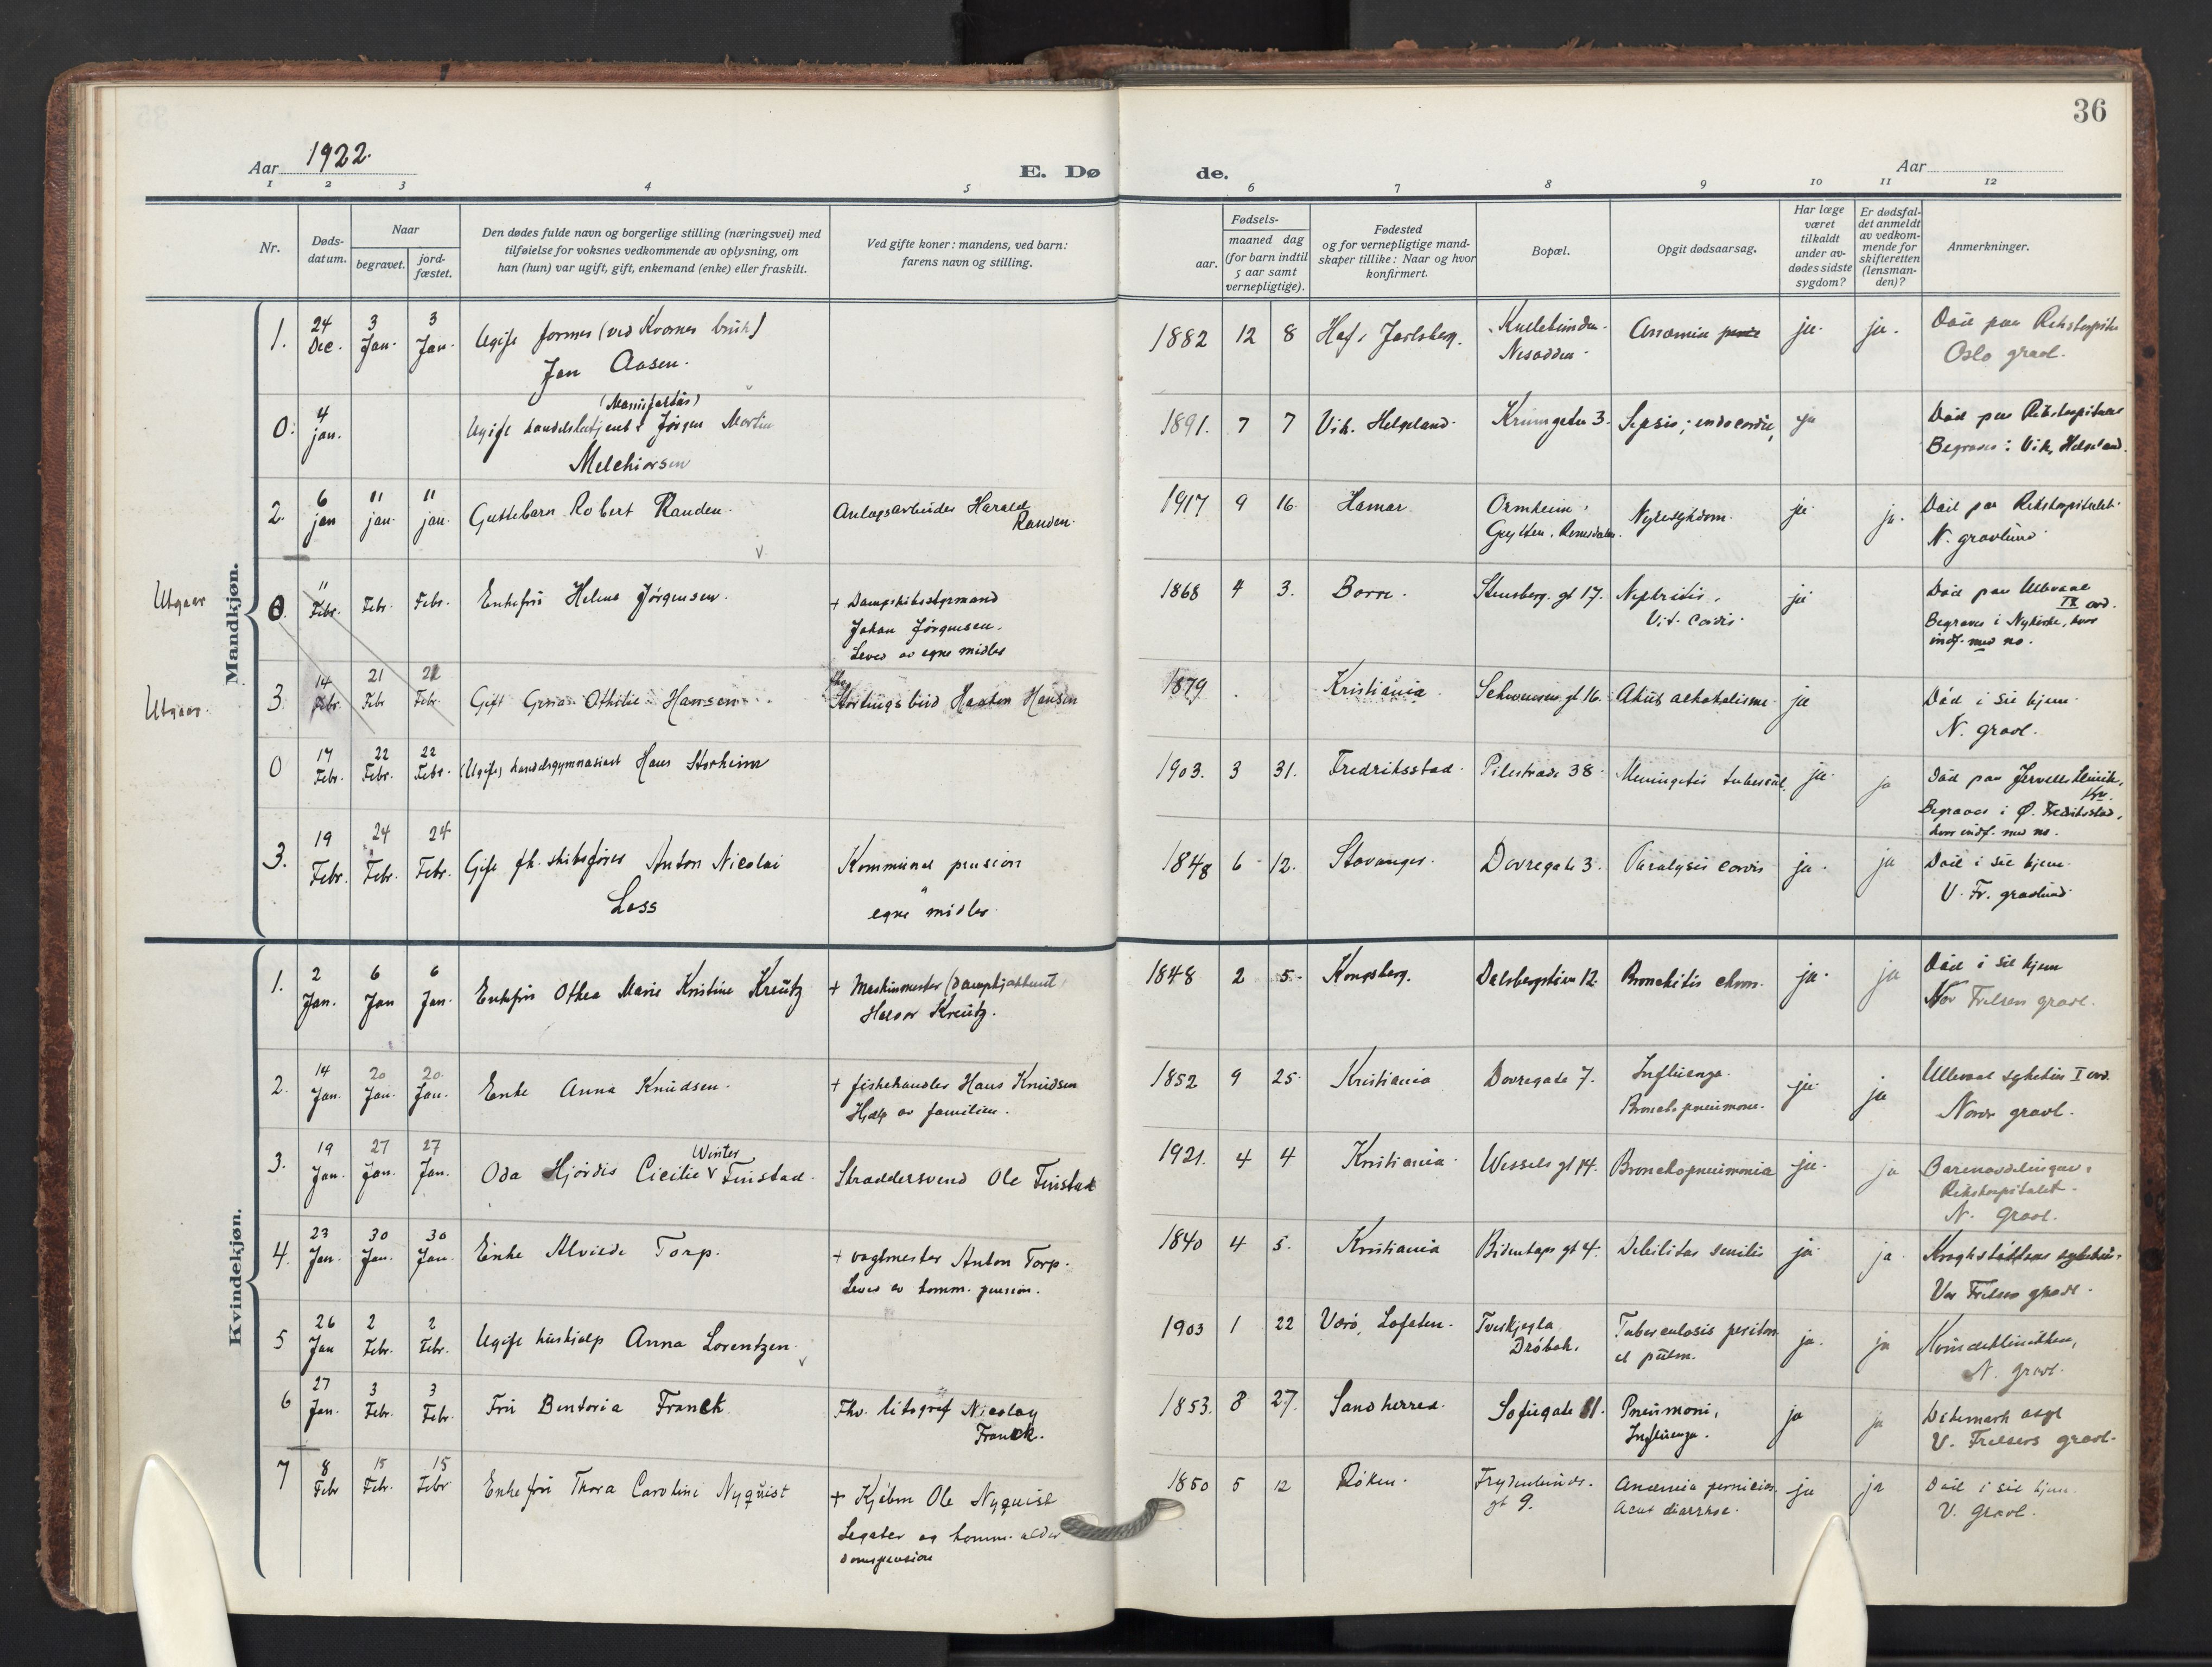 36
Aar 1922.
E. Dø
de.
Aar
1 2 3 4 5 6 7 8 9 10 11 12
Nr.
Døds-
datum.
Naar
begravet.
jord-
fæstet.
Den dødes fulde navn og borgerlige stilling (næringsvei) med
tilføielse for voksnes vedkommende av oplysning, om
han (hun) var ugift, gift, enkemand (enke) eller fraskilt.
Ved gifte koner: mandens, ved barn:
farens navn og stilling.
Fødsels-
aar.
maaned dag
(for barn indtil
5 aar samt
vernepligtige).
Fødested
og for vernepligtige mand-
skaper tillike: Naar og hvor
konfirmert.
Bopæl.
Opgit dødsaarsag.
Har læge
været
tilkaldt
under av-
dødes sidste
sygdom?
Er dødsfal-
det anmeldt
av vedkom-
mende for
skifteretten
(lensman-
den)?
Anmerkninger.
Mandkjøn.
1. 24 Dec. 3 Jan. 3 Jan. Ugift former (ved Kværner bruk)
Jan Aasen.
1882 12 8 Hof i Jarlsberg. Nesodden. Anæmia ja. ja. Död paa Rikshospitalet
Oslo gravl.
0. 4 jan. Ugift handelsbetjent (Manufaktur) Jørgen Martin
Melchiorsen
1891. 7 7 Vik. Helgeland. Krumgaten 3. Sepsis; endocordit, ja Död paa Rikshospitalet
Begraves i Vik, Helgeland.
2. 6 jan 11 jan. 11 jan. Guttebarn Robert Randen.
Anlægsarbeider Harald
Randen.
1917 9 16. Hamar Ormheim,
Grytten, Romsdalen. Nyresykdom. ja. ja. Död paa Rikshospitalet.
N. gravlund
Utgaar 0. 11 Febr. Febr. Febr. Enkefru Helene Jørgensen.
+ Dampskibsstyrmand
Johan Jørgensen.
Leved av egne midler
1868 4 3. Borre. Stensberg. gt 17. Nephritis,
Vit. cordis. ja Död paa Ullevaal
IX avd.
Begraves i Nykirke, hvor
indf. med no.
Utgaar. 3 14 Febr. 21 Febr 21 Febr. Gift Othilie Hansen
fhv.
Stortingsbud Hansen
1879 Kristiania Schwensens gt 16. Akut alkoholisme ja Död i sit hjem
N. gravl.
0 17 Febr. 22 Febr. 22 Febr. (Ugift) handelsgymnasiast Hans Storheim
1903. 3 31. Fredriksstad. Pilestræde 38. Meningitis tubercul. ja. ja Död paa Jervells klinik,
Kr.
Begraves i Ø. Fredriksstad,
hvor indf. med no.
3. 19 Febr. 24 Febr. 24 Febr. Gift fh. skibsfører Anton Nicolai
Lass
Kommunal pension
" egne midler
1848 6 12. Stavanger. Dovregate 3. Paralysis cordis ja. ja Död i sit hjem.
V. Fr. gravlund
Kvindekjøn.
1. 2 Jan. 6 Jan 6 Jan. Enkefru Othea Marie Kristine Kreutz
+ Maskinmester
Halvor Kreutz.
1848 2 5. Kongsberg. Dalsbergstien 12. Bronchitis chron. ja. ja Död i sit hjem
Vor Frelsers gravl.
2. 14 Jan. 20 Jan. 20. Jan. Enke Anna Knudsen.
+ fiskehandler Hans Knudsen
Hjælp av familien.
1852 9 25. Kristiania Dovregate 7. Influenza.
Bronchopneumoni. ja. ja Ullevaal sykehus I avd.
Nordre gravl.
3. 19 Jan. 27 Jan. 27 Jan. Oda Hjördis Cicilie V Winter Finstad.
Skræddersvend Ole Finstad
1921. 4 4 Kristiania. Wessels gt 14. Bronchopneumonia ja. ja Barneavdelingen,
Rikshospitalet.
N. Gravl.
4. 23 Jan. 30 Jan. 30 Jan. Enke Alvilde Torp.
+ vagtmester Anton Torp.
Leved av komm. pension.
1840 4 5. Kristiania Bidenkaps gt 4. Debilitas senilis ja. ja. Kroghstøttens sykehus.
Vor Frelsers gravl.
5 26 Jan 2 Febr. 2 Febr. Ugift hushjælp Anna Lorentzen.
1903 1 22 Værö, Lofoten.
Dröbak. Tuberculosis periton.
et pulm. ja. ja Kvindeklinikken,
N. gravl.
6 27 Jan. 3 Febr. 3 Febr. Fru Bentoria Franck
Fhv. litograf Nicolay
Franck.
1853. 8 27. Sandherred. Sofiegate 11. Pneumoni,
Influenza. ja ja
V. Frelsers gravl.
7 8 Febr 15 Febr. 15 Febr Enkefru Thora Caroline Nyquist
+ Kjøbm Ole Nyquist
Legater og komm. alder
domspension
1850 5 12 Röken. Frydenlunds.
gt 9. Anæmia pernicios.
Acut diarrhoe. ja ja Död i sit hjem.
V. Gravl.